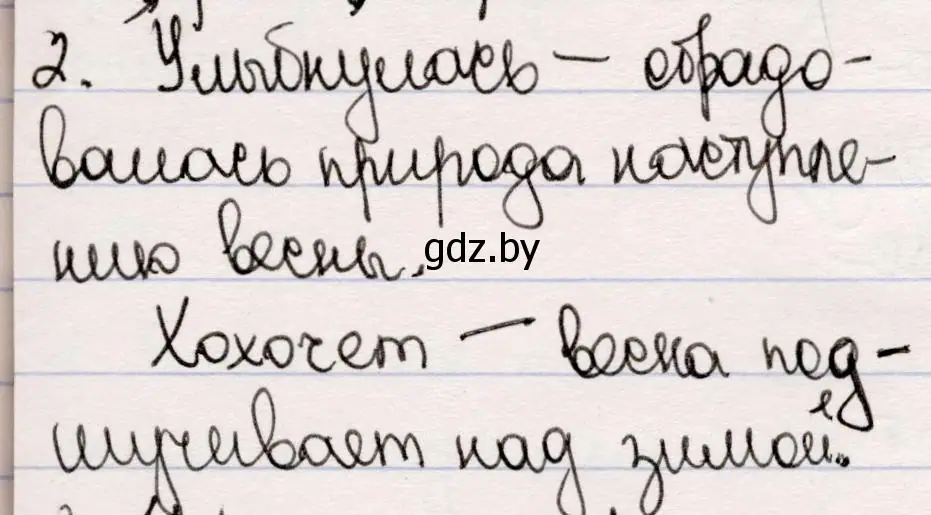 2. Улыбнулась — обрадо-
валась природа наступле-
нию весны.
gdz.by
Хохочет — весна под-
шучивает над зимой.